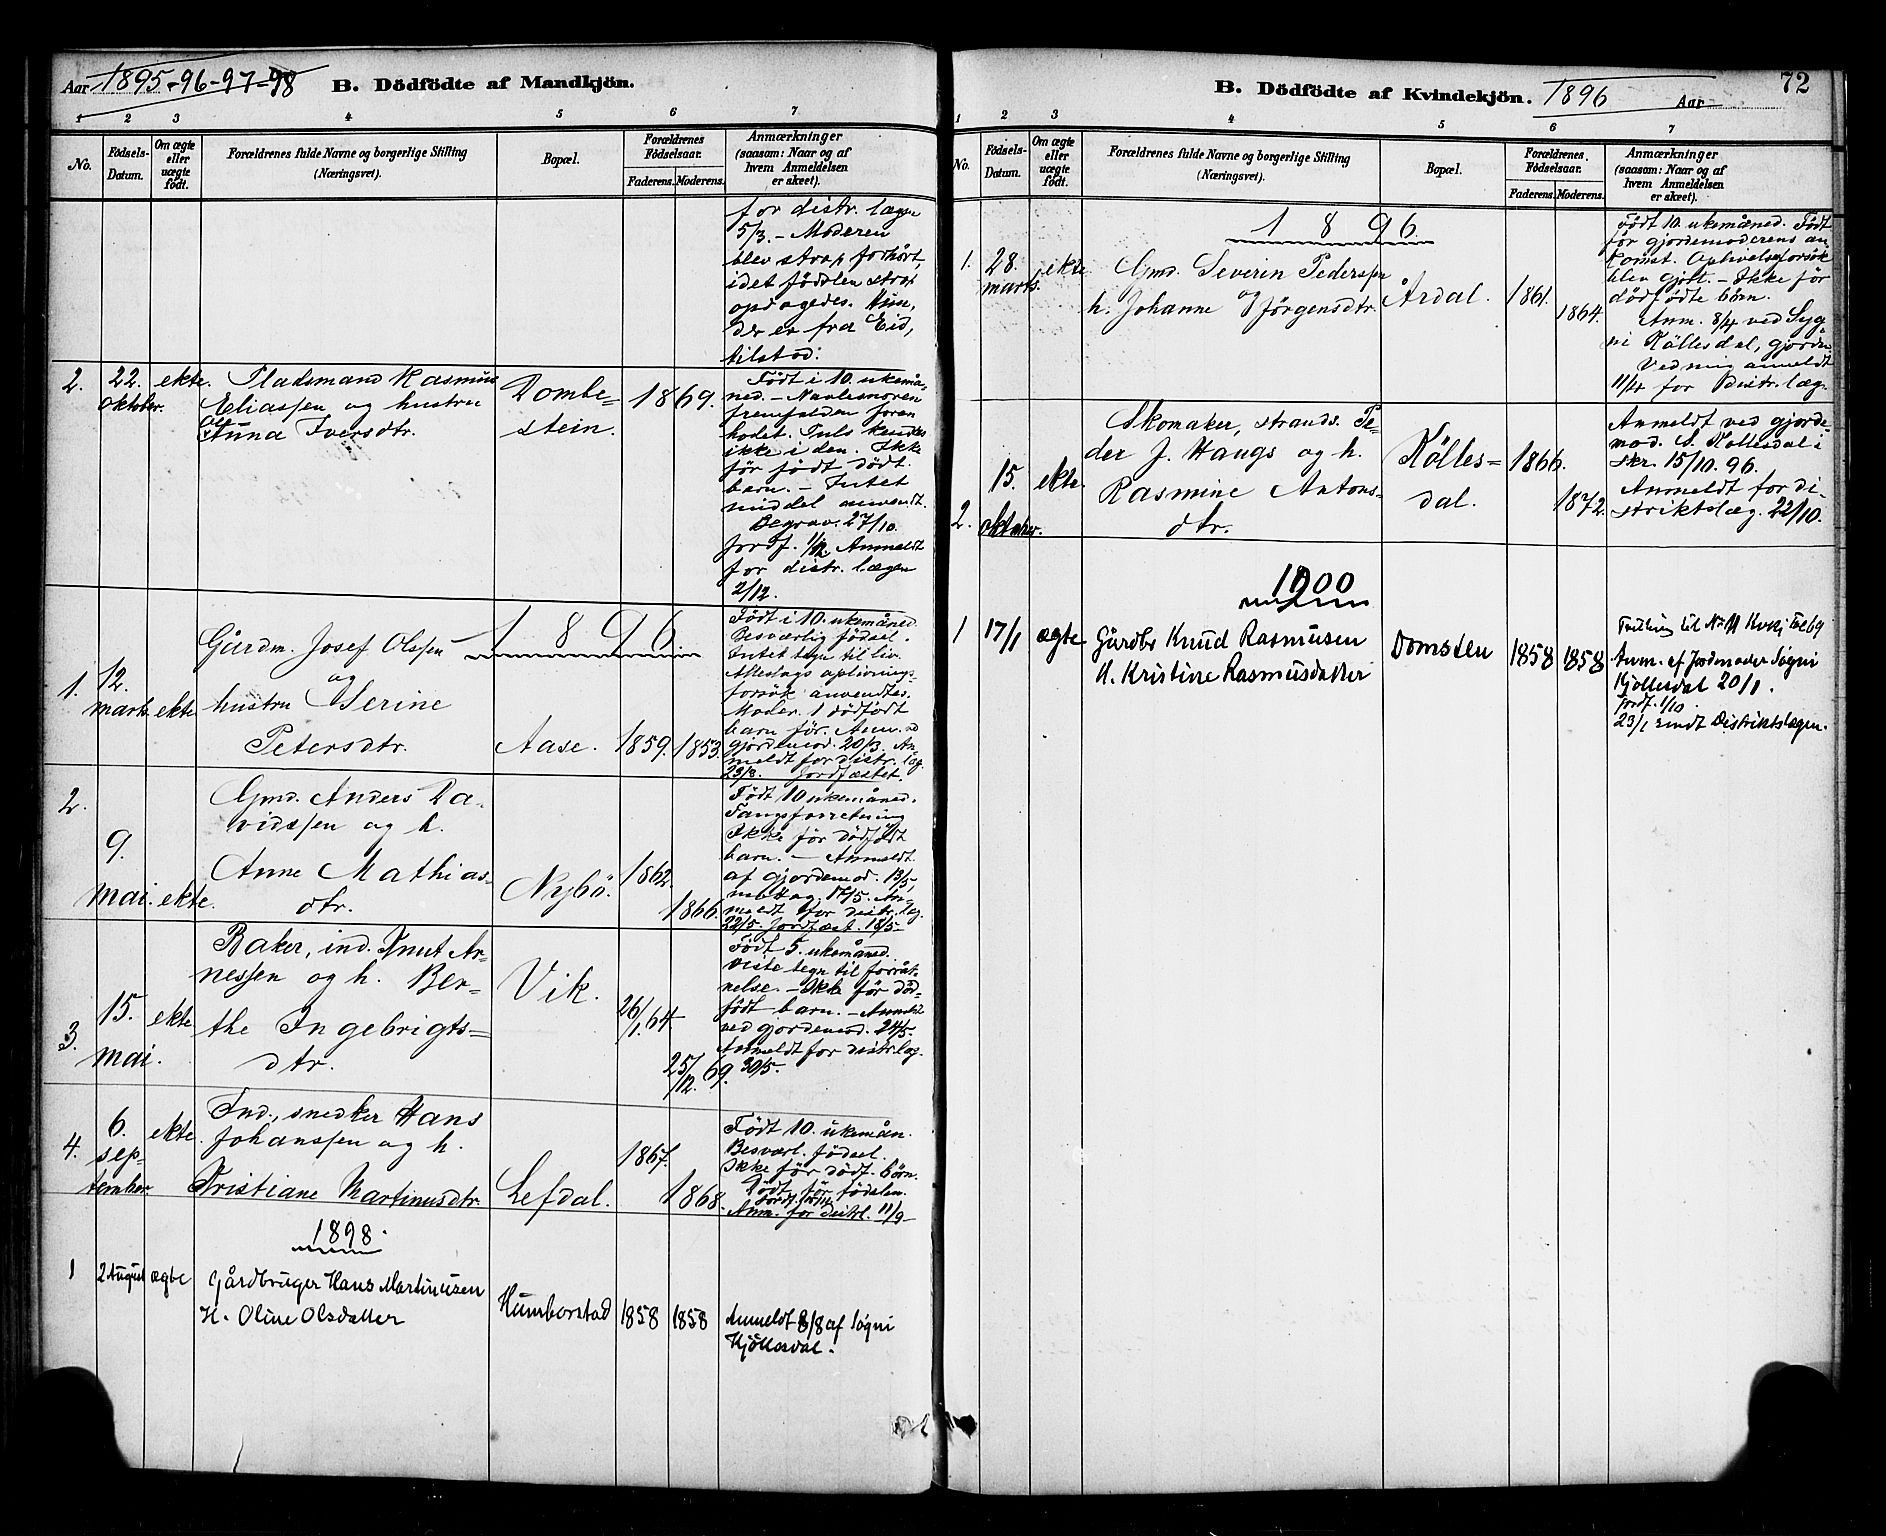 Aar 1895-96-97-98 B. Dödfödte af Mandkjön.
1 2 3 4 5 6 7
No. Födsels-Datum. Om ægte eller uægte födt. Forældrenes fulde Navne og borgerlige Stilling (Næringsvei). Bopæl. Forældrenes Födselsaar. Faderens. Moderens. Anmærkninger (saasom: Naar og af hvem Anmeldelsen er skeet).
for distr. lægen
5/3. - Moderen
blev strax forhört
idet födslen strax
opdagedes. Hun,
der er fra Eid,
tilstod.
2. 22. oktober. ekte. Pladsmand Rasmus
Eliassen og hustru
Anna Iversdtr.
Dombe-
stein.
1869.
Födt i 10. ukemå-
ned. - Navlesnoren
fremfalden foran
hodet. Puls kendes
ikke i den. Ikke
för födt dödt
barn. - Intet
middel anvendt.
Begrav. 27/10.
jordf. 1/12 Anmeldt
for distr. lægen
2/12.
1896
1. 12. marts ekte Gårdm. Josef Olssen
og
hustru Serine
Petersdtr.
Aase. 1859. 1853.
Födt i 10. ukemåned
Besværlig födsel.
Intet tegn til liv.
Akeslags oplivnings-
forsök anvendtes.
Moder. 1 dödfödt
barn för. Anm. ved
gjordemod. 20/3. An-
meldt for distr. læg.
23/3. Jordfæstet.
2. 9. mai. ekte. Gmd. Anders Da-
vidssen og h.
Anne Mathias-
dtr.
Nybö. 1862. 1866.
Födt 10 ukemåned.
Tangforretning
Ikke för dödfödt
barn. - Anmeldt
af gjordemod. 13/5,
17/5. An-
meldt for distr. læg.
22/5. Jordfæst. 18/5-
3. 15. mai. ekte Baker, ind. Knut Ar-
nessen og h. Ber-
the Ingebrigts-
dtr.
Vik. 26/1. 64 25/12. 69.
Födt 5. ukemåned.
Viste tegn til forråt-
nelse. - Ikke för död-
födt barn. - Anmeldt
ved gjordemod. 24/5.
Anmeldt for distr. læg.
30/5.
4. 6. sep-
tember ekte. Ind., snedker Hans
Johanssen og h.
Kristiane Martinusdtr.
Lefdal. 1867. 1868.
Födt 10. ukemån.
Besværl. födsel.
Ikke för dödf. börn.
Död för födslen.
Anm. for distrl. 11/9-
1898.
1 2 August ægte Gårdbruger Hans Martinusen
H. Oline Olsdatter
Humborstad 1858 1858
Anmeldt 8/8 af Sögni
Hjöllesdal.
72
B. Dödfödte af Kvindekjön. 1896 Aar
1 2 3 4 5 6 7
No. Födsels-Datum. Om ægte eller uægte födt. Forældrenes fulde Navne og borgerlige Stilling (Næringsvei). Bopæl. Forældrenes Födselsaar. Faderens. Moderens. Anmærkninger (saasom: Naar og af hvem Anmeldelsen er skeet).
1896
1. 28. marts. ekte Gmd. Severin Pederssen
og
h. Johanne Jörgensdtr.
Årdal. 1861. 1864.
Födt 10. ukemåned. Födt
för gjordemoderens an-
komst. Oplivelseforsök
blev gjort. - Ikke för
dödfödte börn.
Anm. 8/4 ved Syg-
ni Köllesdal, gjorde-
anmeldt
11/4 for Distr. læg.
2. 15. oktober. ekte. Skomaker, strands. Pe-
der J. Haugs og h.
Rasmine Antons-
dtr.
Kölles-
dal. 1866. 1872.
Anmeldt ved gjorde-
mod. S.Köllesdal i
skr. 15/10. 96.
Anmeldt for di-
striktslæg. 22/10.
1900
1 17/1 ægte Gårdbr Knud Rasmusen
H. Kristine Rasmusdatter
Domsten 1858 1858
Tvilling til No 11
Anm. af Jordmoder Sögni
Kjöllesdal 20/1.
jordf. 1/10
23/1 sendt Distriktslægen.